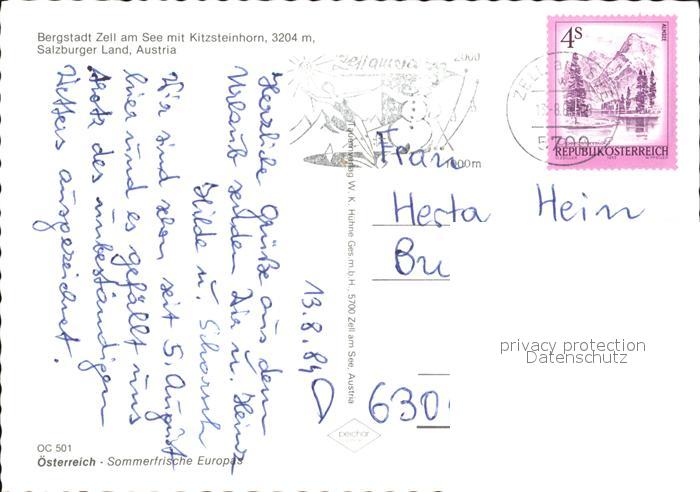 Bergstadt Zell am See mit Kitzsteinhorn, 3204 m,
Salzburger Land, Austria
Herzliche Grüße aus dem
Urlaub senden Dir u. Heinz
Hilde u. Schorsch
Wir sind schon seit 5. August
hier und es gefällt uns
trotz des unbeständigen
Wetters ausgezeichnet.
13.8.84
OC 501
Österreich - Sommerfrische Europas
W. K. Hühne Ges.m.b.H., 5700 Zell am See, Austria
peichar
Zell am See
2000
1000m
ZELL a
5700
4s
ALMSEE
REPUBLIK ÖSTERREICH
Frau
Herta Hein
Bu
630
privacy protection
Datenschutz